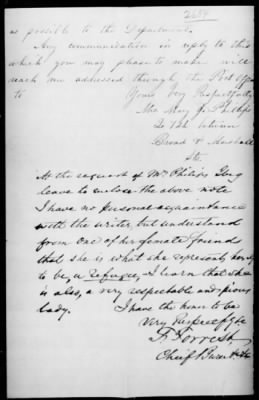 as possible to the Department.
Any communication in reply to this
which you may please to make will
reach me addressed through the Post Office
to Yours Very Respectfully
Mrs Mary J. Phillips
Broad & Marshall
Sts.
At the request of Mrs Philips I beg
leave to enclose the above note
I have no personal acquaintance
with the writer, but understand
from one of her female friends
that she is what she represents herself
to be, a refugee, & learn that she
is also, a very respectable and pious
lady. I have the honor to be
Very Respectfully
F. Forrest
Chief Bureau